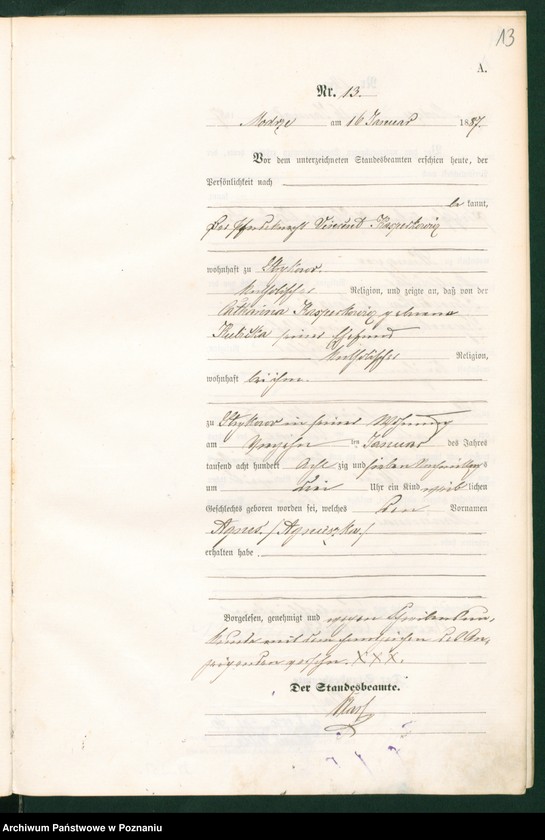 13
A.
Nr. 13.
Modrze am 16 Januar 1887.
Vor dem unterzeichneten Standesbeamten erschien heute, der
Persönlichkeit nach
be kannt,
der Pferdeknecht Vincent Kasperkowiz
wohnhaft zu Strykowo.
katholischer Religion, und zeigte an, daß von der
Catharina Kasperkowiz geborene
Kubicka seiner Ehefrau
katholischer Religion,
wohnhaft bei ihm.
zu Strykowo in seiner Wohnung
am ten Januar des Jahres
tausend acht hundert acht zig und sieben Nachmittags
um drei Uhr ein Kind weib lichen
Geschlechts geboren worden sei, welches den Vornamen
Agnes. /Agnieszka/
erhalten habe.
Vorgelesen, genehmigt und wegen Schreibens Un-
kunde mit den Handzeichen des An-
zeigenden versehn. XXX.
Der Standesbeamte.
Archiwum Państwowe w Poznaniu